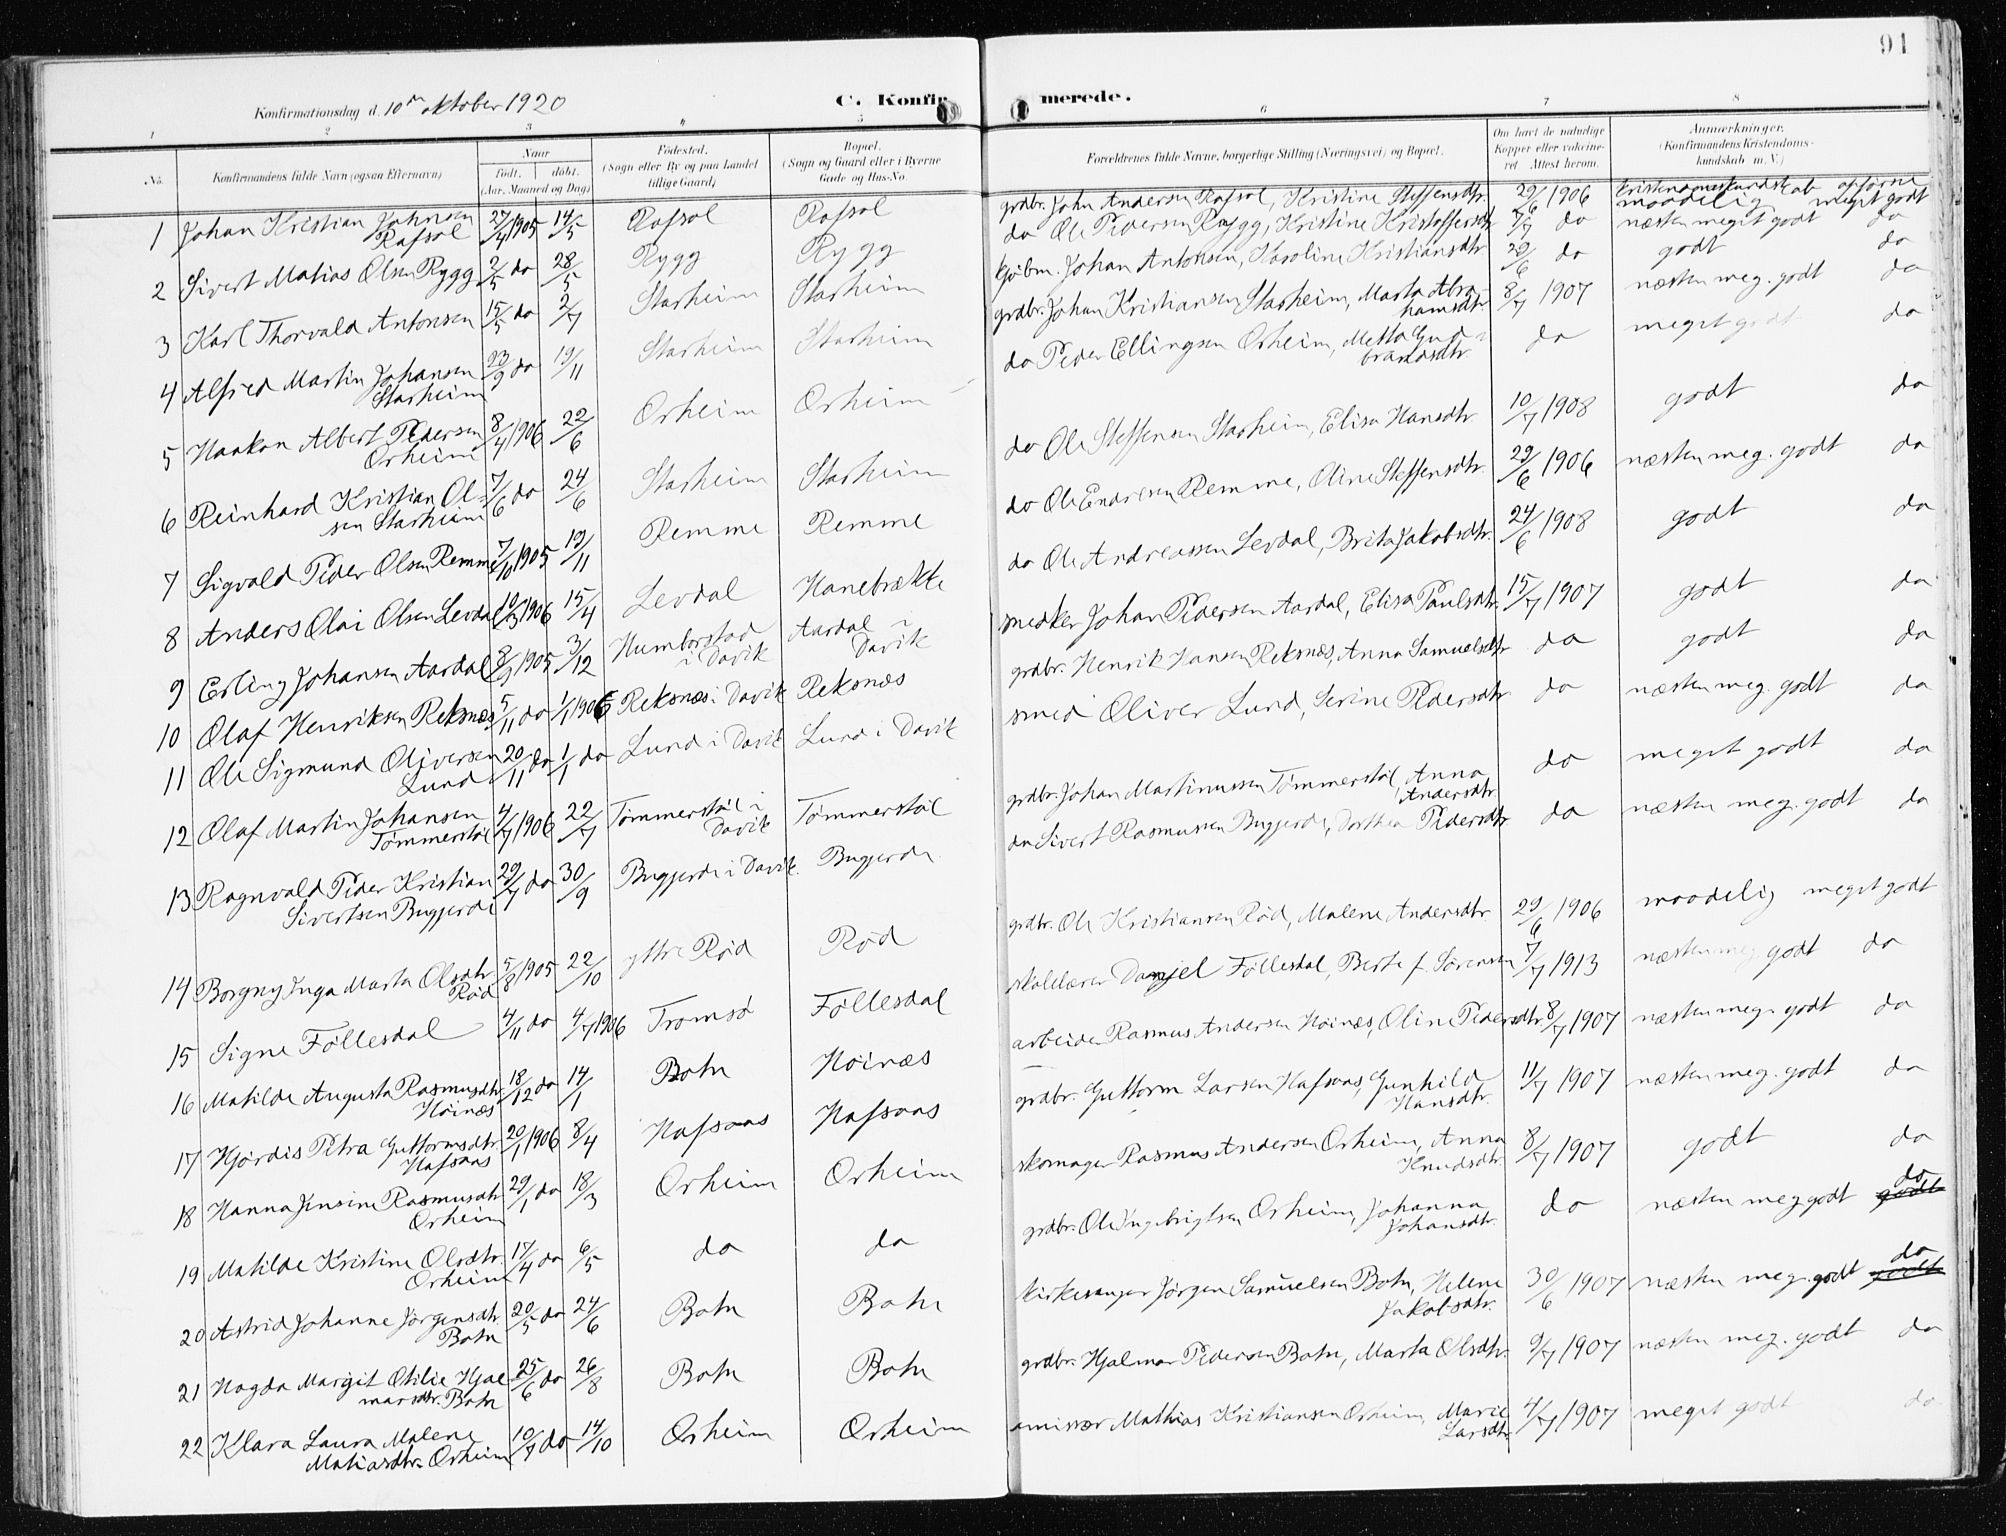 91
Konfirmationsdag d. 10de oktober 1920
C. Konfirmerede.
1 2 3 4 5 6 7 8
No.
Konfirmandens fulde Navn (ogsaa Efternavn)
Naar
født. døbt.
(Aar, Maaned og Dag)
Fødested.
(Sogn eller By og paa Landet tillige Gaard)
Bopæl.
(Sogn og Gaard eller i Byerne Gade og Hus-No.
Forældrenes fulde Navne, borgerlige Stilling (Næringsvei) og Bopæl.
Om havt de naturlige Kopper eller vaccineret. Attest herom.
Anmærkninger.
(Konfirmandens Kristendomskundskab m. V.)
kristendomskundskab opførsel
1 Johan Kristian Johnsen Rafsol 27/4 1905 14/5 Rafsol Rafsol grdbr. John Andersen Rafsol, Kristine Steffensdtr. 29/6 1906 maadelig meget godt
2 Sivert Matias Olsen Rygg 2/5 do 28/5 Rygg Rygg do Ole Pedersen Rygg, Kristine Kristoffersdtr 7/7 do næsten meget godt do
3 Karl Thorvald Antonsen 15/5 do 2/7 Starheim Starheim kjøbm. Johan Antonsen, Karoline Kristiansdtr 29/6 do godt do
4 Alfred Martin Johansen Starheim 23/9 do 19/11 Starheim Starheim grdbr. Johan Kristiansen Starheim, Marta Abrahamsdtr. 8/7 1907 næsten meg. godt do
5 Haakon Albert Pedersen Orheim 8/4 1906 22/6 Orheim Orheim do Peder Ellingsen Orheim, Metta Gudbrandsdtr do meget godt do
6 Reinhard Kristian Olsen Starheim 7/6 do 24/6 Starheim Starheim do Ole Steffensen Starheim, Elisa Hansdtr. 10/7 1908 godt do
7 Sigvald Peder Olsen Remme 7/10 1905 19/11 Remme Remme do Ole Endresen Remme, Oline Steffensdtr. 29/6 1906 næsten meg. godt do
8 Anders Olai Olsen Levdal 10/3 1906 15/4 Levdal Hanebrække do Ole Andreassen Levdal, Brita Jakobsdtr. 24/6 1908 godt do
9 Erling Johansen Aardal 1905 3/12 Humborstad i Davik Aardal i Davik snedker Johan Pedersen Aardal, Elisa Paulsdtr. 15/7 1907 godt do
10 Olaf Henriksen Reksnæs 5/11 do 1/1 1906 Reksnæs i Davik Reksnæs grdbr. Henrik Hansen Reksnæs, Anna Samuelsdtr do godt do
11 Ole Sigmund Oliversen Lund 20/11 do 1/1 do Lund i Davik Lund i Davik smed Oliver Lund, Serine Pedersdtr do næsten meg. godt do
12 Olaf Martin Johansen Tømmerstøl 4/7 1906 22/7 Tømmerstøl i Davik Tømmerstøl grdbr. Johan Martinussen Tømmerstøl, Anna Andersdtr. do meget godt do
13 Ragnvald Peder Kristian Sivertsen Bugjerde 29/7 do 30/9 Bugjerde i Davik. Bugjerde do Sivert Rasmussen Bugjerde, Dorthea Pedersdtr do næsten meg. godt do
14 Borgny Inga Marta Olsdtr. Rød 5/8 1905 22/10 yttre Rød Rød grdbr. Ole Kristiansen Rød, Malene Andersdtr. 29/6 1906 maadelig meget godt
15 Signe Føllesdal 4/11 do 4/7 1906 Tromsø Føllesdal skolelærer Daniel Føllesdal, Berte f. Sørensen 7/7 1913 næsten meg godt do
16 Matilde Augusta Rasmusdtr. Høinæs 18/12 do 14/1 Botn Høinæs arbeider Rasmus Andersen Høinæs, Oline Pedersdtr. 8/7 1907 næsten meg. godt do
17 Hjørdis Petra Guttormsdtr Hafsaas 20/1 1906 8/4 Hafsaas Hafsaas grdbr. Guttorm Larsen Hafsaas, Gunhild Hansdtr. 11/7 1907 næsten meg. godt do
18 Hanna Jensine Rasmusdtr Orheim 29/1 do 18/3 Orheim Orheim skomager Rasmus Andersen Orheim, Anna Knudsdtr. 8/7 1907 godt do
19 Matilde Kristine Olsdtr. Orheim 17/4 do 6/5 do do grdbr. Ole Ingebrigtsen Orheim, Johanna Johansdtr. do næsten meg godt godt do
20 Astrid Johanne Jörgensdtr. Botn 20/5 do 24/6 Botn Botn kirkesanger Jörgen Samuelsen Botn, Helene Jakobsdtr. 30/6 1907 næsten meg. godt godt do
21 Magda Margit Otilie Hjalmarsdtr. Botn 25/6 do 26/8 Botn Botn grdbr. Hjalmar Pedersen Botn, Marta Olsdtr. 9/7 1907 næsten meg. godt do
22 Klara Laura Malene Matiasdtr. Orheim 10/7 do 14/10 Orheim Orheim emissær Mathias Kristiansen Orheim, Marie Larsdtr 4/7 1907 meget godt do